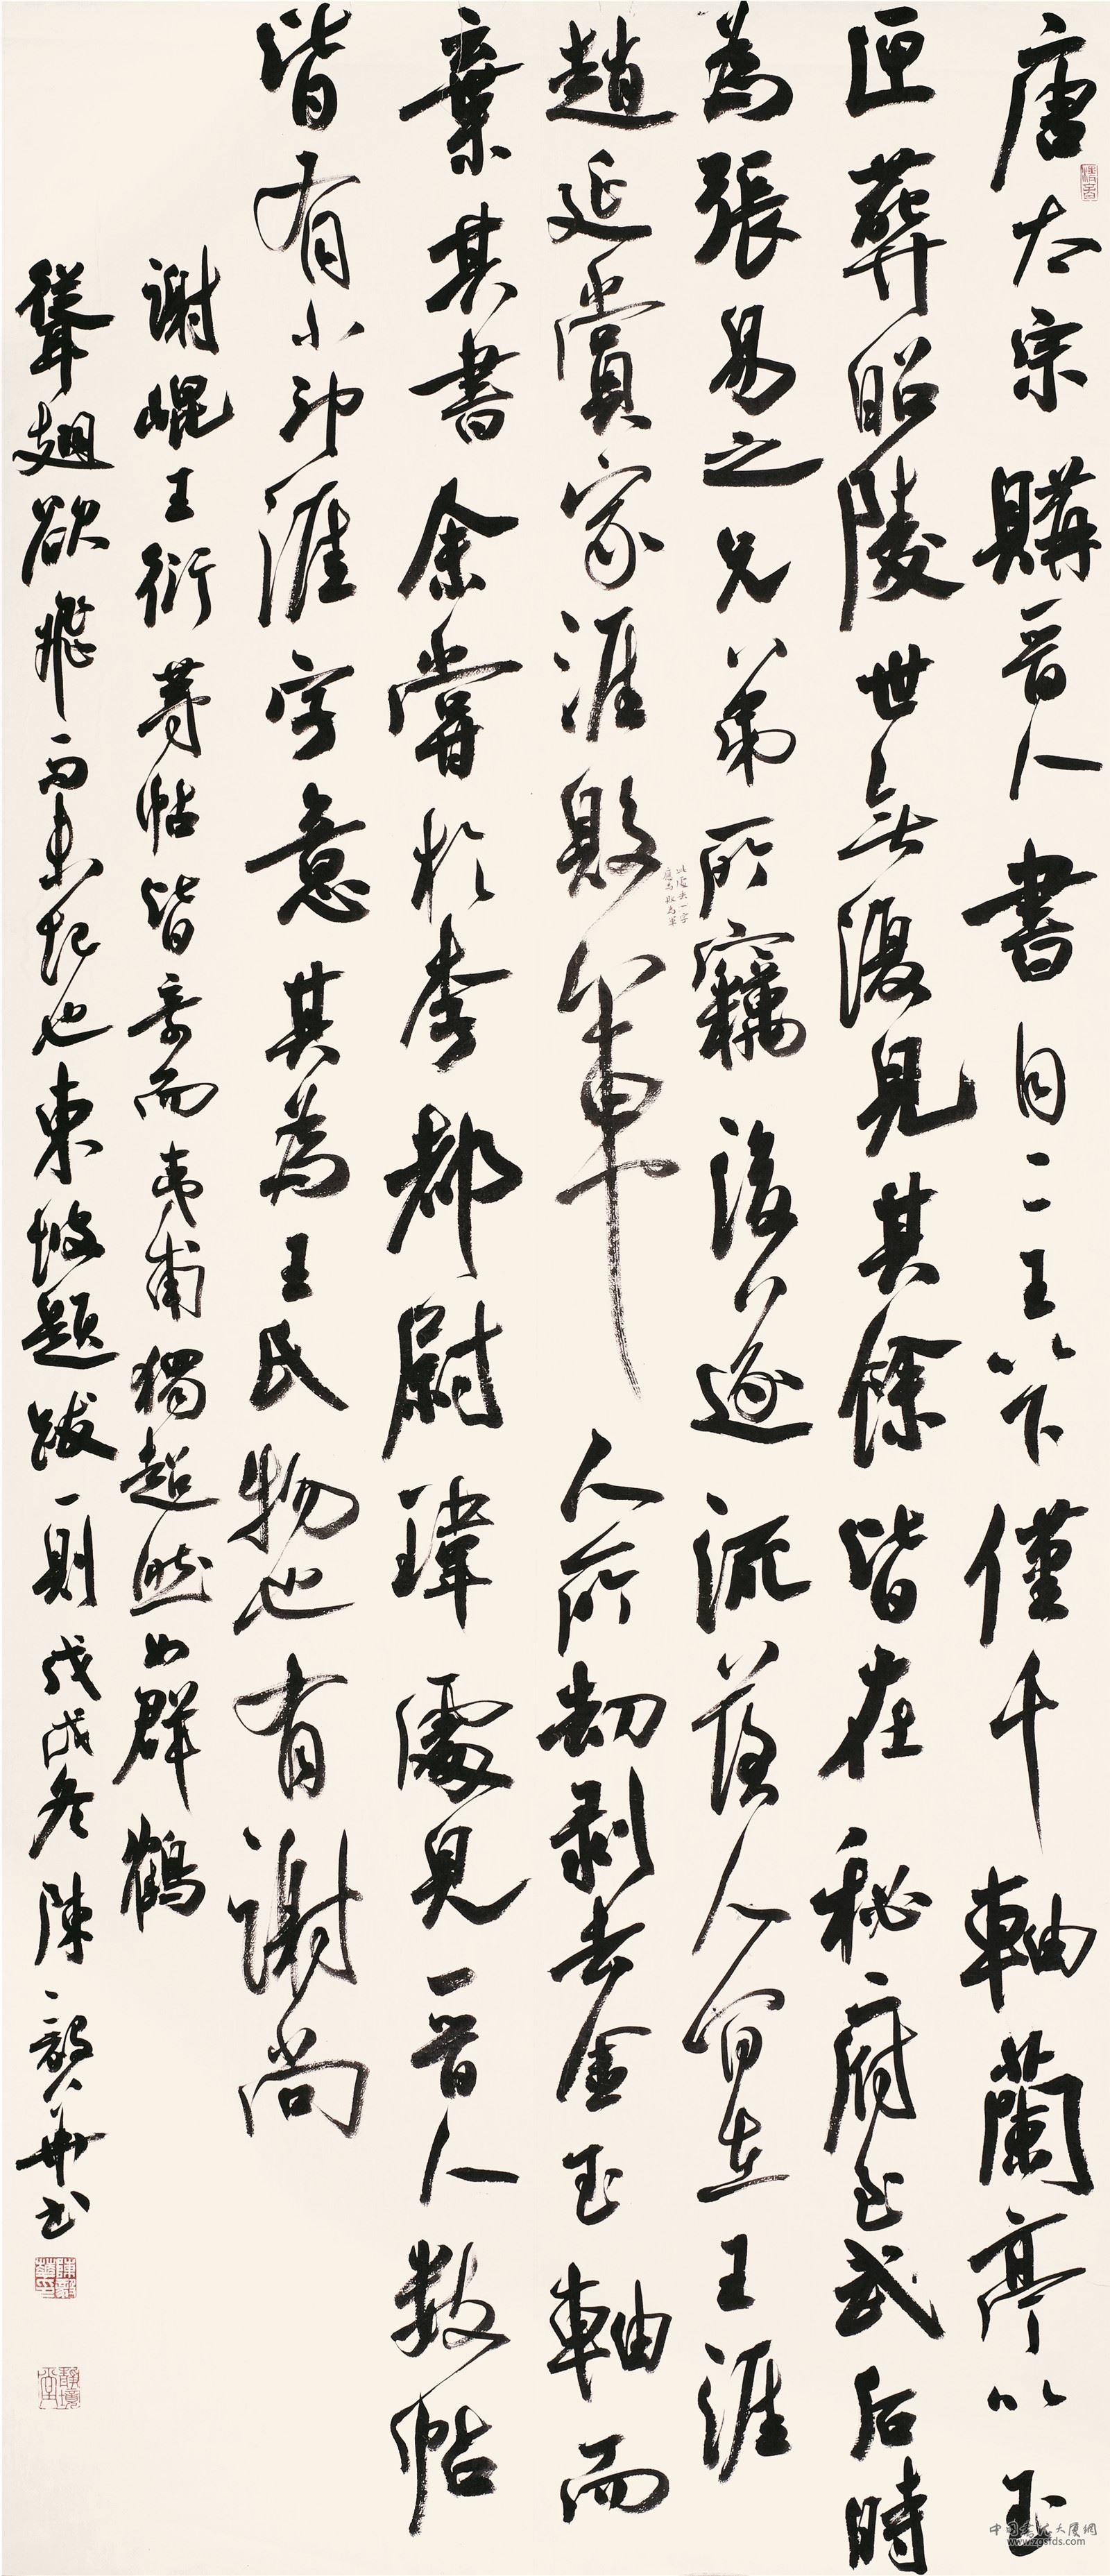 唐太宗購晋人書自二王以下僅千軸蘭亭以玉
匣葬昭陵世無復見其餘皆在秘府至武后時
為張易之兄弟所竊後遂流落人間在王涯
趙延賞家涯敗軍人所劫剥去金玉軸而
此處失一字
應為敗為軍
棄其書余嘗於李都尉瑋處見晋人數帖
皆有小印涯字意其為王氏物也有謝尚
謝鯤王衍等帖皆奇而夷甫獨超然如群鶴
聳翅欲飛而未起也東坡題跋一則戊戌冬陳毅華書
陳毅華印
中国书法大厦網
www.zgsfds.com